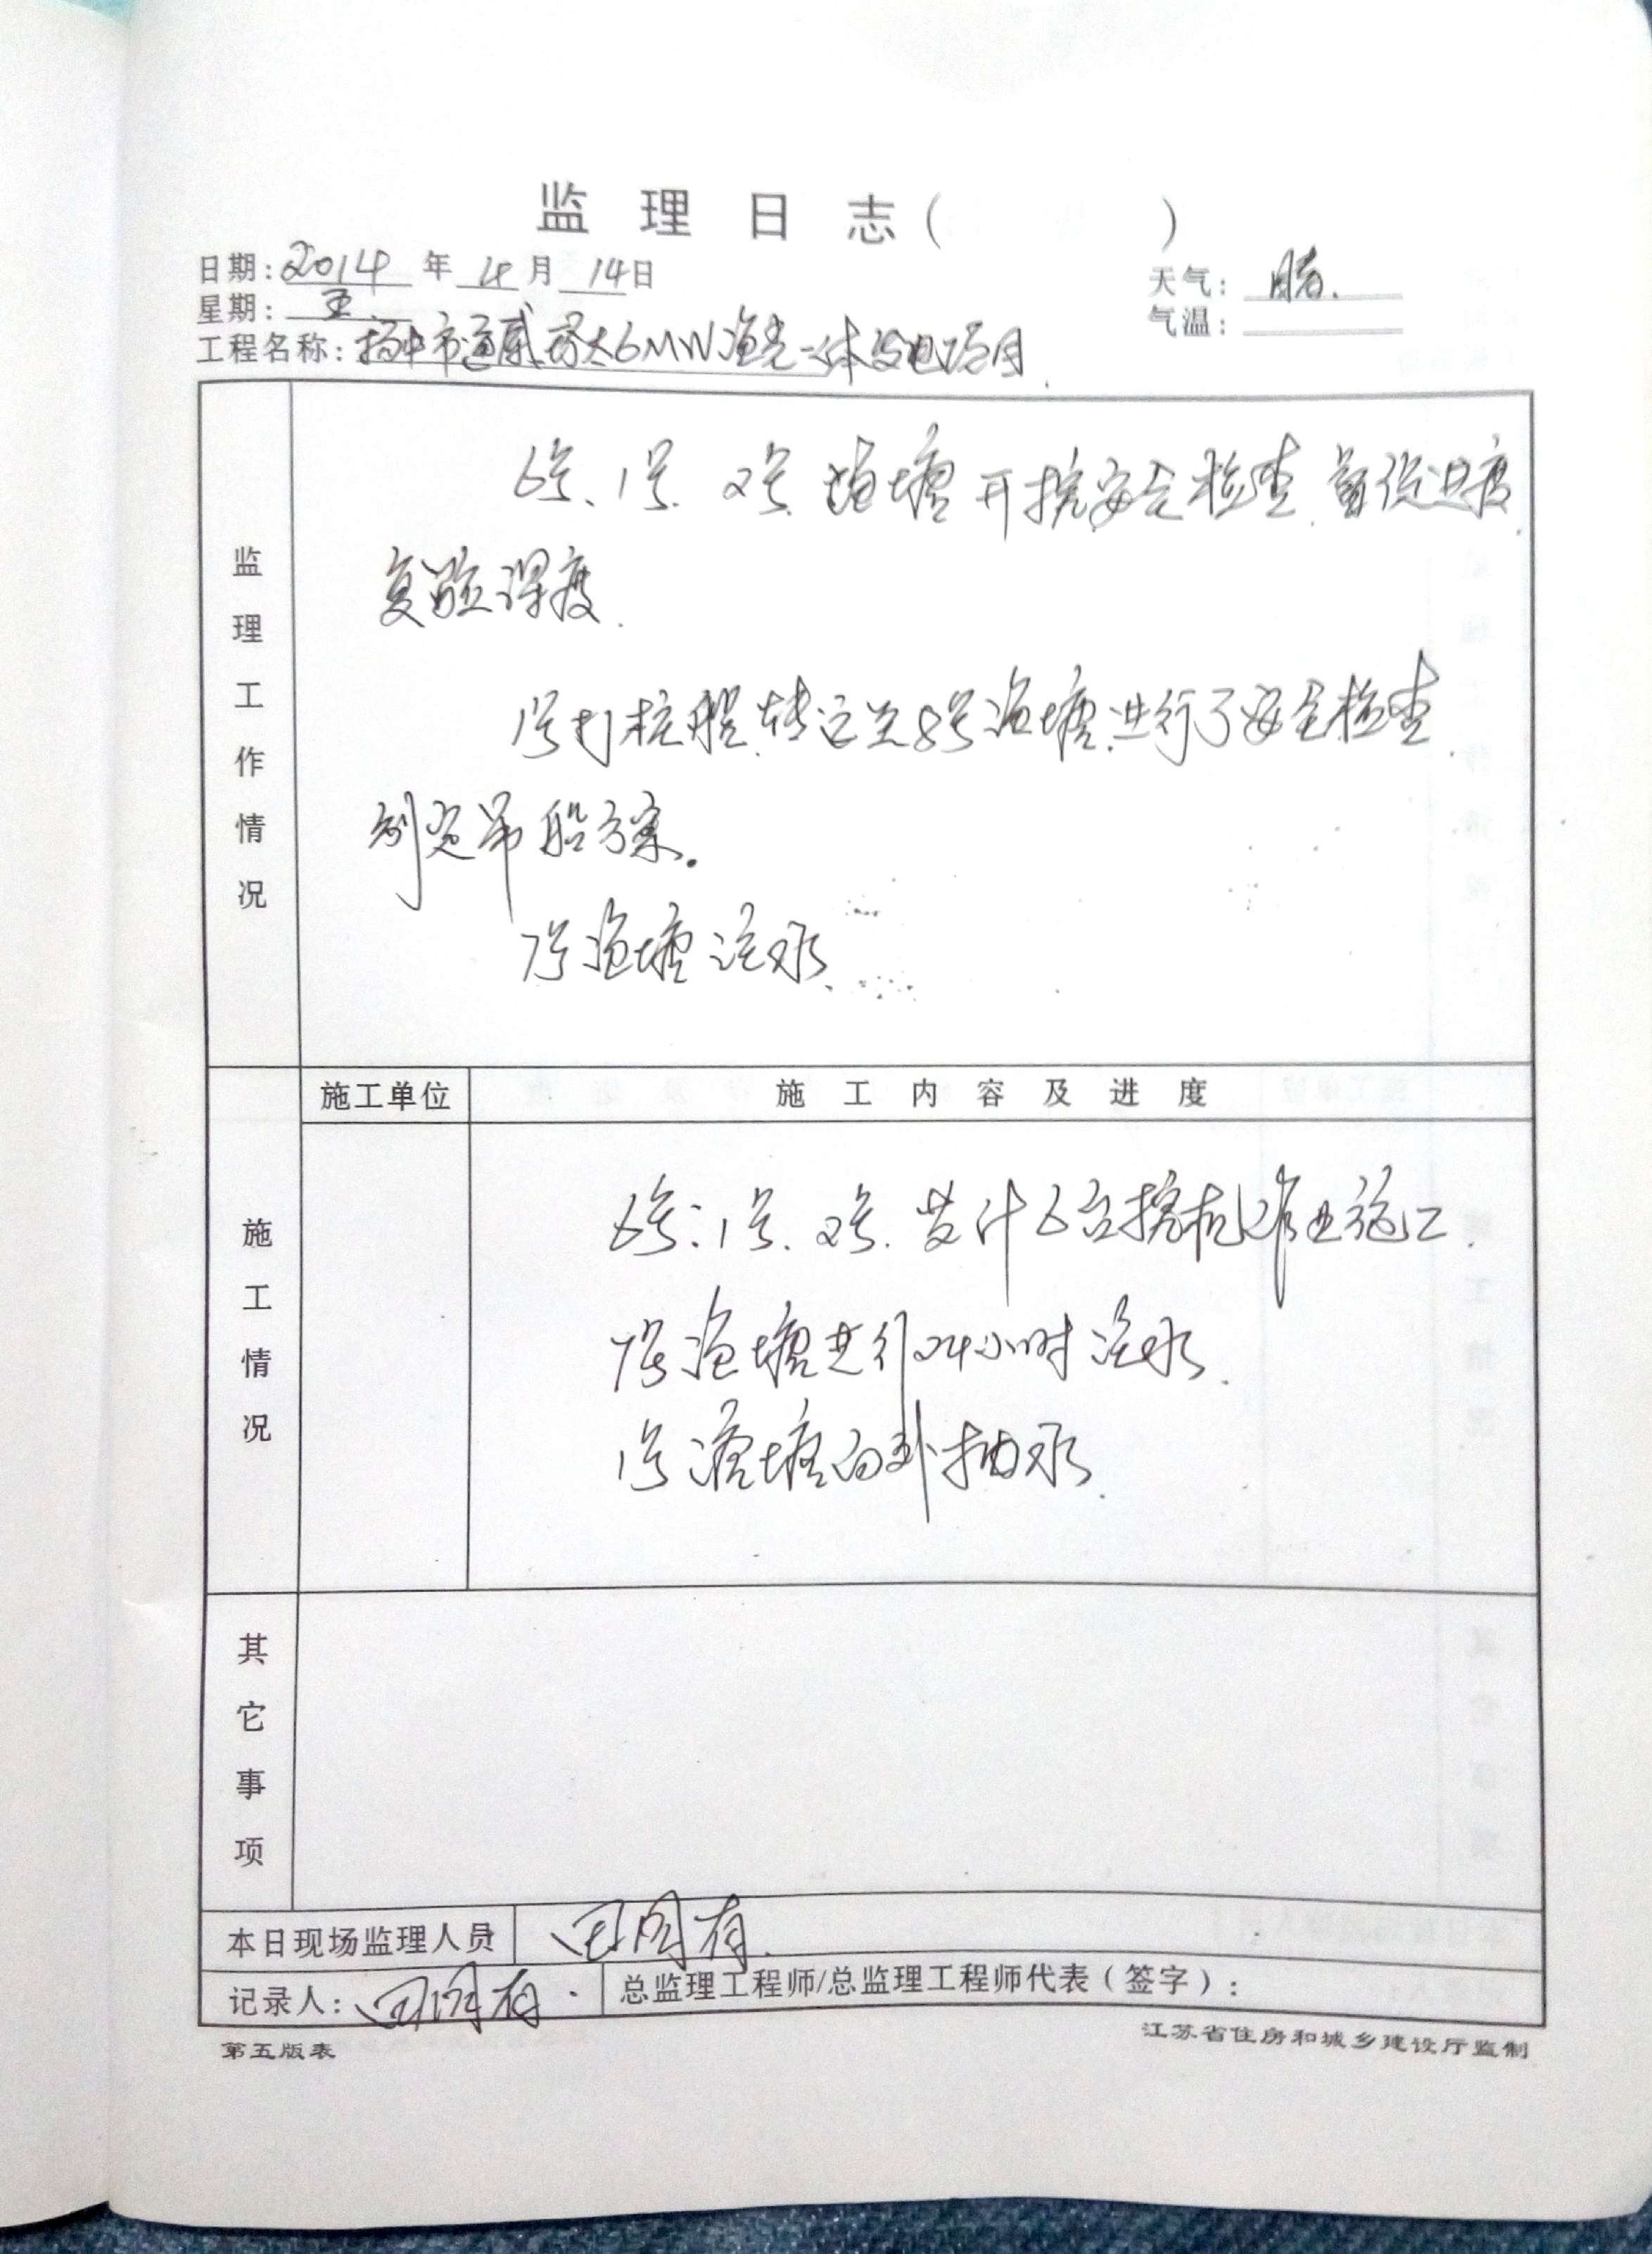 监理日志( )
日期:2014年4月14日
天气:晴.
星期:五.
气温:
工程名称:扬中市通威 6MW渔光一体发电项目.
监理工作情况
6号、1号、2号、渔塘开挖安全检查、督促进度、
复验深度.
1号打桩船、转运至8号渔塘、进行了安全检查.
制定吊船方案.
7号渔塘注水.
施工单位
施工内容及进度
施工情况
6号:1号、2号、共计6台挖机作业施工.
7号渔塘进行24小时注水.
1号渔塘向外抽水.
其它事项
本日现场监理人员
记录人:
总监理工程师/总监理工程师代表(签字):
第五版表
江苏省住房和城乡建设厅监制